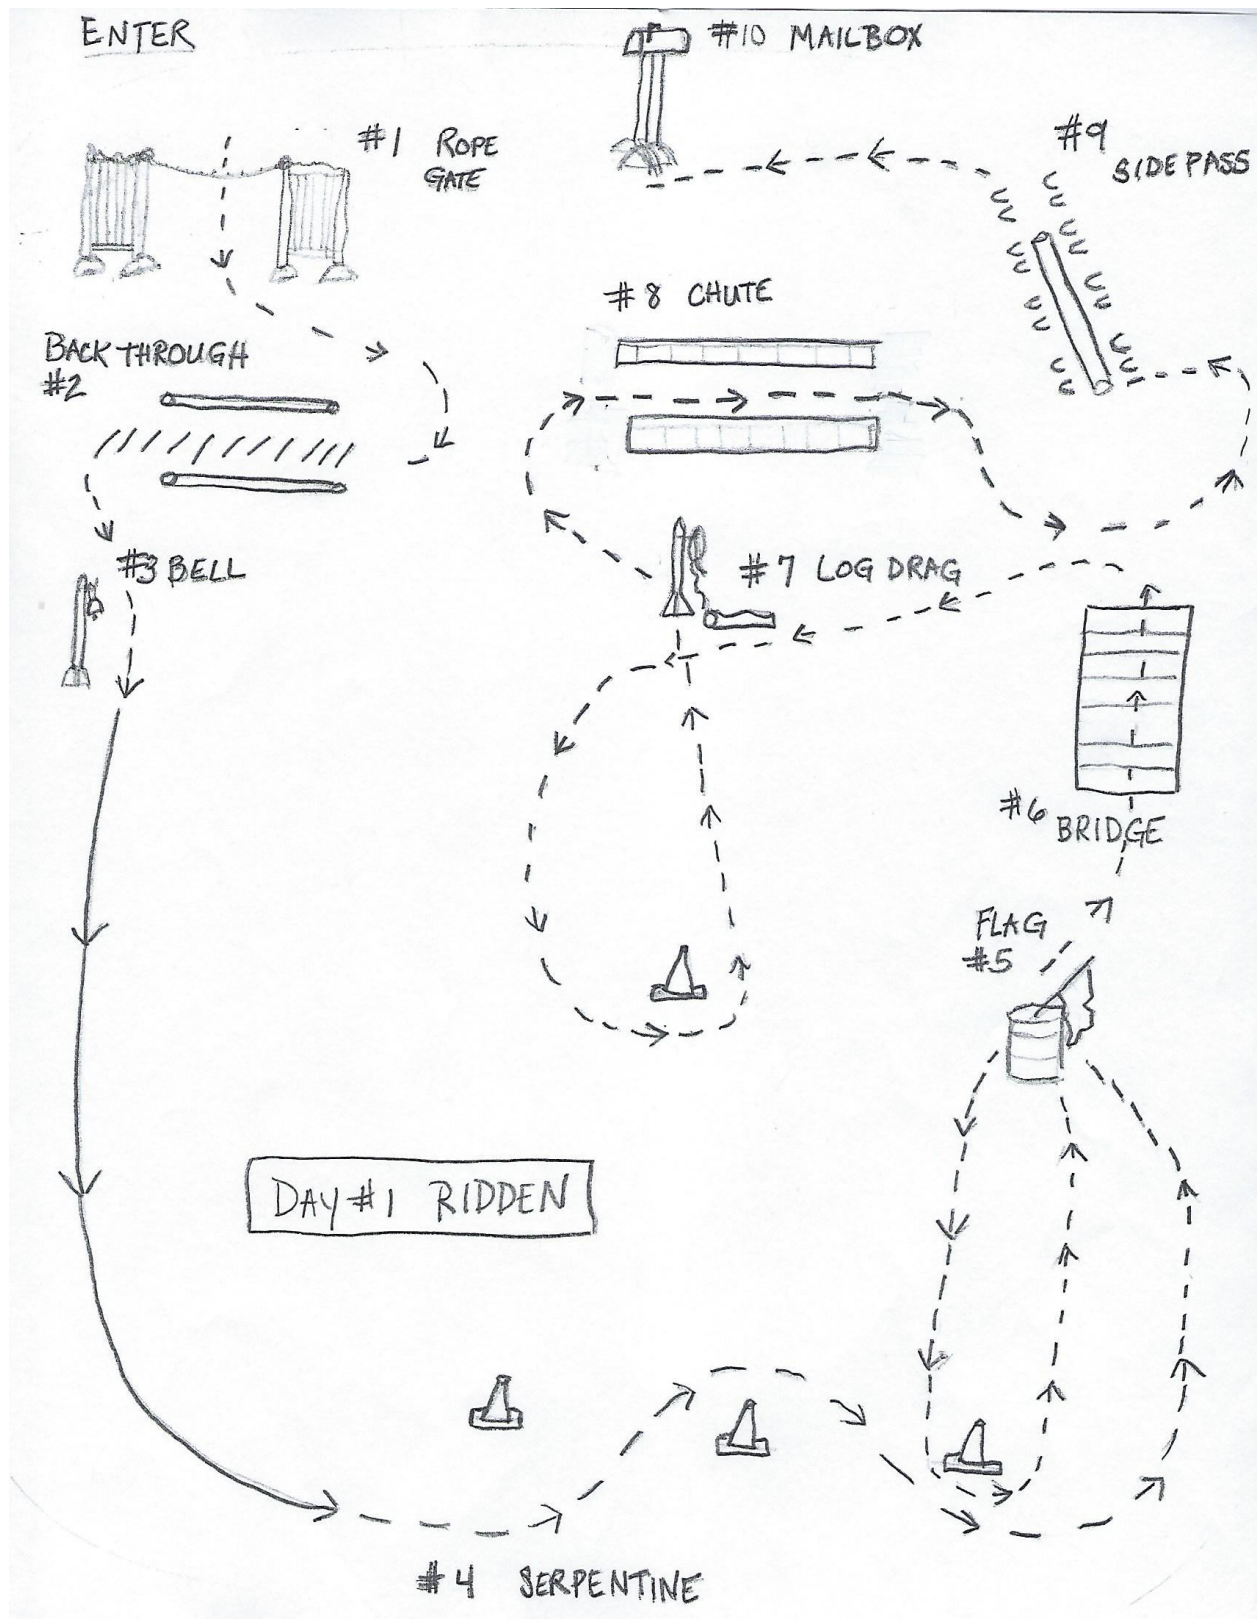 ENTER
#10 MAILBOX
#1 ROPE
GATE
#9
SIDEPASS
#8 CHUTE
BACK THROUGH
#2
#3 BELL
#7 LOG DRAG
#6
BRIDGE
FLAG
#5
DAY #1 RIDDEN
#4 SERPENTINE